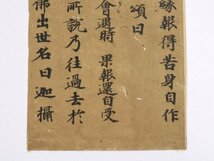 緣報得苦身自作
頌曰
會遇時 果報還自受
所說乃往過去於
佛出世名曰迦攝